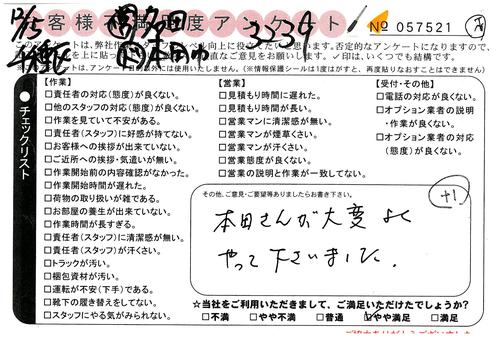 お客様不満足度アンケート
No 057521
12/15
3234
このアンケートは、弊社
否定的なアンケートになりますので、
直なご意見をお願いします。✓印は、いくつでも結構です。
は、アンケート目的以外には使用いたしません。(※情報保護シールは1度がすと、再度貼りなおすことはできません)
チェックリスト
【作業】
□責任者の対応(態度)が良くない。
□他のスタッフの対応(態度)が良くない。
□作業を見ていて不安がある。
□責任者(スタッフ)に好感が持てない。
□お客様への挨拶が出来ていない。
□ご近所への挨拶・気遣いが無い。
□作業開始前の内容確認がなかった。
□作業開始時間が遅れた。
□荷物の取り扱いが雑である。
□お部屋の養生が出来ていない。
□作業時間が長すぎる。
□責任者(スタッフ)に清潔感が無い。
□責任者(スタッフ)が汗くさい。
□トラックが汚い。
□梱包資材が汚い。
□運転が不安(下手)である。
□靴下の履き替えをしてない。
□スタッフにやる気がみられない。
【営業】
□見積もり時間に遅れた。
□見積もり時間が長い。
□営業マンに清潔感が無い。
□営業マンが煙草くさい。
□営業マンが汗くさい。
□営業態度が良くない。
□営業の説明と作業が一致してない。
【受付・その他】
□電話の対応が良くない。
□オプション業者の説明
・作業が良くない。
□オプション業者の対応
(態度)が良くない。
その他、ご意見・ご要望等ありましたらお書き下さい。
+1
本田さんが大変よく
やって下さいました。
☆当社をご利用いただきまして、ご満足いただけたでしょうか?
□不満 □やや不満 □普通 ☑やや満足 □満足
ご協力ありがとうございました